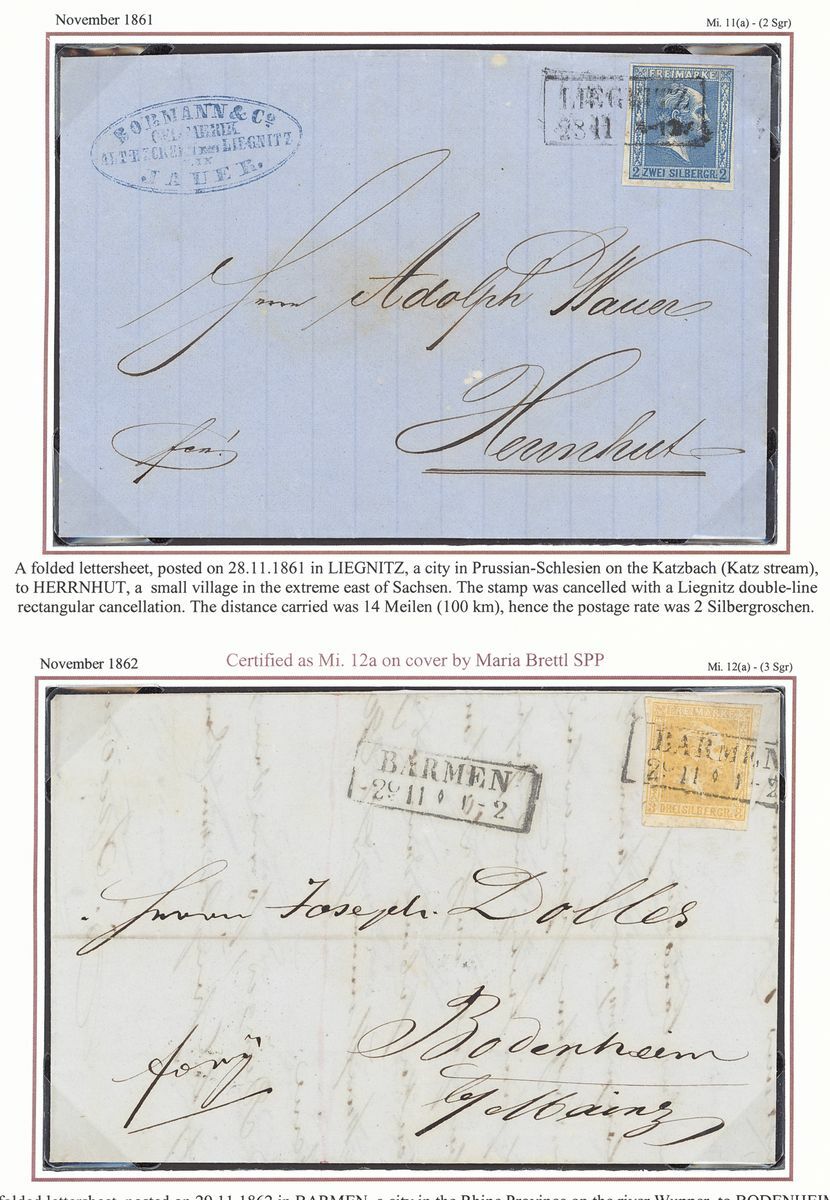 November 1861
Mi. 11(a) - (2 Sgr)
LIEGNITZ
28 11
FREIMARKE
2 ZWEI SILBERGR. 2
& Co
LIEGNITZ
IN
JAUER.
Herrn Adolph Wauer
Herrnhut
A folded lettersheet, posted on 28.11.1861 in LIEGNITZ, a city in Prussian-Schlesien on the Katzbach (Katz stream),
to HERRNHUT, a small village in the extreme east of Sachsen. The stamp was cancelled with a Liegnitz double-line
rectangular cancellation. The distance carried was 14 Meilen (100 km), hence the postage rate was 2 Silbergroschen.
November 1862
Certified as Mi. 12a on cover by Maria Brettl SPP
Mi. 12(a) - (3 Sgr)
BARMEN
29 11 - 2
FREIMARKE
BARMEN
29 11 - 2
3 DREI SILBERGR. 3
Herrn Joseph Dolles
Bodenheim
b/ Mainz
folded lettersheet, posted on 29.11.1862 in BARMEN, a city in the Rhine Province on the river Wupper, to BODENHEI